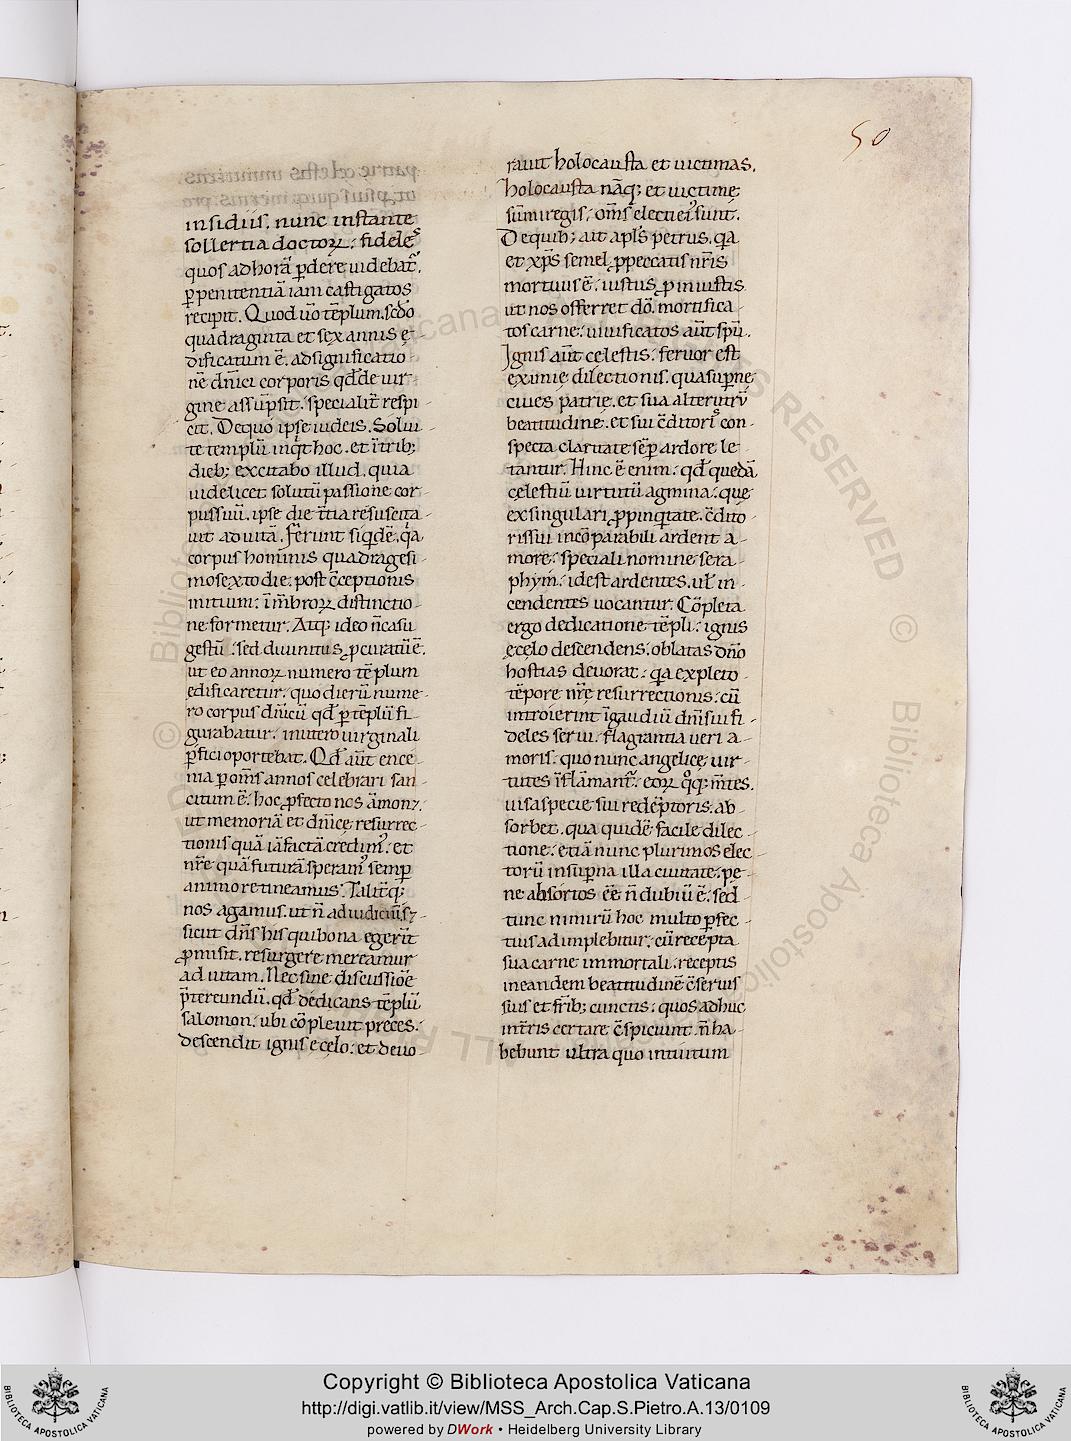 50
insidiis. nunc instante
sollertia doctorꝝ. fideles
quos ad horā ꝑdere uidebat̄.
ꝑ penitentiā iam castigatos
recipit. Quod ūo tēplum. sed̄o
quadraginta et sex annis ę-
dificatum ē. ad significatio-
nē dn̄ici corporis qd̄ de uir-
gine assūpsit. specialit̄ respi-
cit. De quo ipse iudeis. Solui-
te templū inqͥt hoc. et ī trib;
dieb; excitabo illud. quia
uidelicet solutū passione cor-
pus suū. ipse die t̄tia resuscita-
uit ad uitā. Fer̄unt siqͥdē. qͣa
corpus hominis quadragesi-
mo sexto die. post c̄ceptionis
initium. ī mēbrorꝝ distinctio-
ne formetur. Atq; ideo n̄ casu
gestū. sed diuinitus ꝓcuratū ē.
ut eo annorꝝ numero tēplum
edificaretur. quo dierū nume-
ro corpus dn̄icū qd̄ ꝑ tēplū fi-
gurabatur. in utero uirginali
ꝑfici oportebat. Qd̄ aūt ence-
nia ꝑ om̄s annos celebrari san-
citum ē. hoc ꝓfecto nos āmon⁊.
ut memoriā et dn̄icę resurrec-
tionis quā iā factā credimꝰ. et
nr̄e quā futurā speramꝰ semꝑ
animo retineamus. Talit̄q;
nos agamus. ut n̄ ad iudiciū. s⁊
sicut dn̄s his qui bona egerūt
ꝓmisit. resurgere mereamur
ad uitam. Nec sine discussiōe
p̄tereundū. qd̄ dedicans tēplū
salomon. ubi cōpleuit preces.
descendit ignis e cęlo. et deuo-
rauit holocausta et uictimas.
Holocausta nāq; et uictimę
sūmi regis. om̄s electi eiꝰ sunt.
De quib; ait apl̄s petrus. qͣa
et xp̄s semel ꝓ peccatis nr̄is
mortuus ē. iustus ꝓ iniustis
ut nos offerret dō. mortifica-
tos carne. uiuificatos aūt sp̄u.
Ignis aūt celestis. feruor est
eximię dilectionis. qua suꝑnę
ciues patrię. et sua alterutrū
beatitudine. et sui c̄ditoris con-
specta claritate sēꝑ ardore le-
tantur. Hinc ē enim. qd̄ quedā
cęlestiū uirtutū agmina. que
ex singulari ꝓpinqͥtate. c̄dito-
ris sui incōparabili ardent a-
more. speciali nomine sera-
phym. id est ardentes. ul̄ in-
cendentes uocantur. Cōpleta
ergo dedicatione tēpli. ignis
e cęlo descendens. oblatas dn̄o
hostias deuorat. qͣa expleto
tēpore nr̄ę resurrectionis. cū
introierint ī gaudiū dn̄i sui fi-
deles serui. flagrantia ueri a-
moris. quo nunc angelicę uir-
tutes īflāmantᷣ. eorꝝ qͦq; m̄tes.
uisa specie sui redēptoris. ab-
sorbet. qua quidē facile dilec-
tione. etiā nunc plurimos elec-
torū in suꝑna illa ciuitate. pe-
ne absortos ēē n̄ dubiū ē. sed
tunc nimirū hoc multo ꝑfec-
tius adimplebitur. cū recepta
sua carne immortali. receptis
in eandem beatitudinē c̄seruis
suis et fr̄ib; cunctis. quos adhuc
in t̄ris certare c̄spiciunt. n̄ ha-
bebunt ultra quo intuitum
Copyright © Biblioteca Apostolica Vaticana
http://digi.vatlib.it/view/MSS_Arch.Cap.S.Pietro.A.13/0109
powered by DWork • Heidelberg University Library